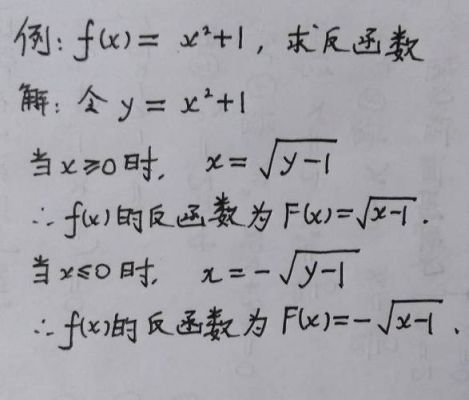 例: f(x) = x²+1, 求反函数
解: 令 y = x²+1
当 x≥0 时, x = √(y-1)
∴ f(x)的反函数为 F(x)=√(x-1).
当 x≤0 时, x = -√(y-1)
∴ f(x)的反函数为 F(x)=-√(x-1).